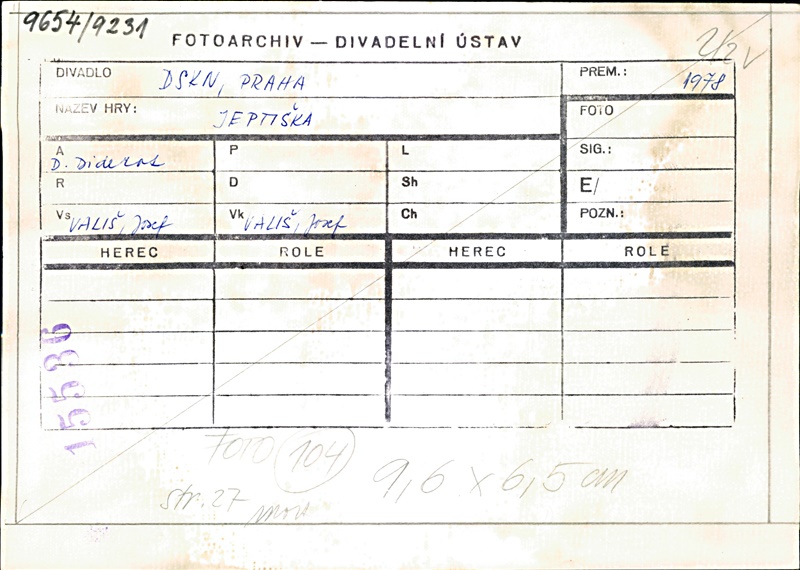 9654/9231
FOTOARCHIV — DIVADELNÍ ÚSTAV
DIVADLO DSKN, PRAHA
PREM.: 1978
NÁZEV HRY: JEPTIŠKA
FOTO
A D. Diderot
P
L
SIG.:
R
D
Sh
E/
Vs VALIŠ, Josef
Vk VALIŠ, Josef
Ch
POZN.:
HEREC ROLE HEREC ROLE
15536
FOTO 104
9,6 x 6,5 cm
str. 27